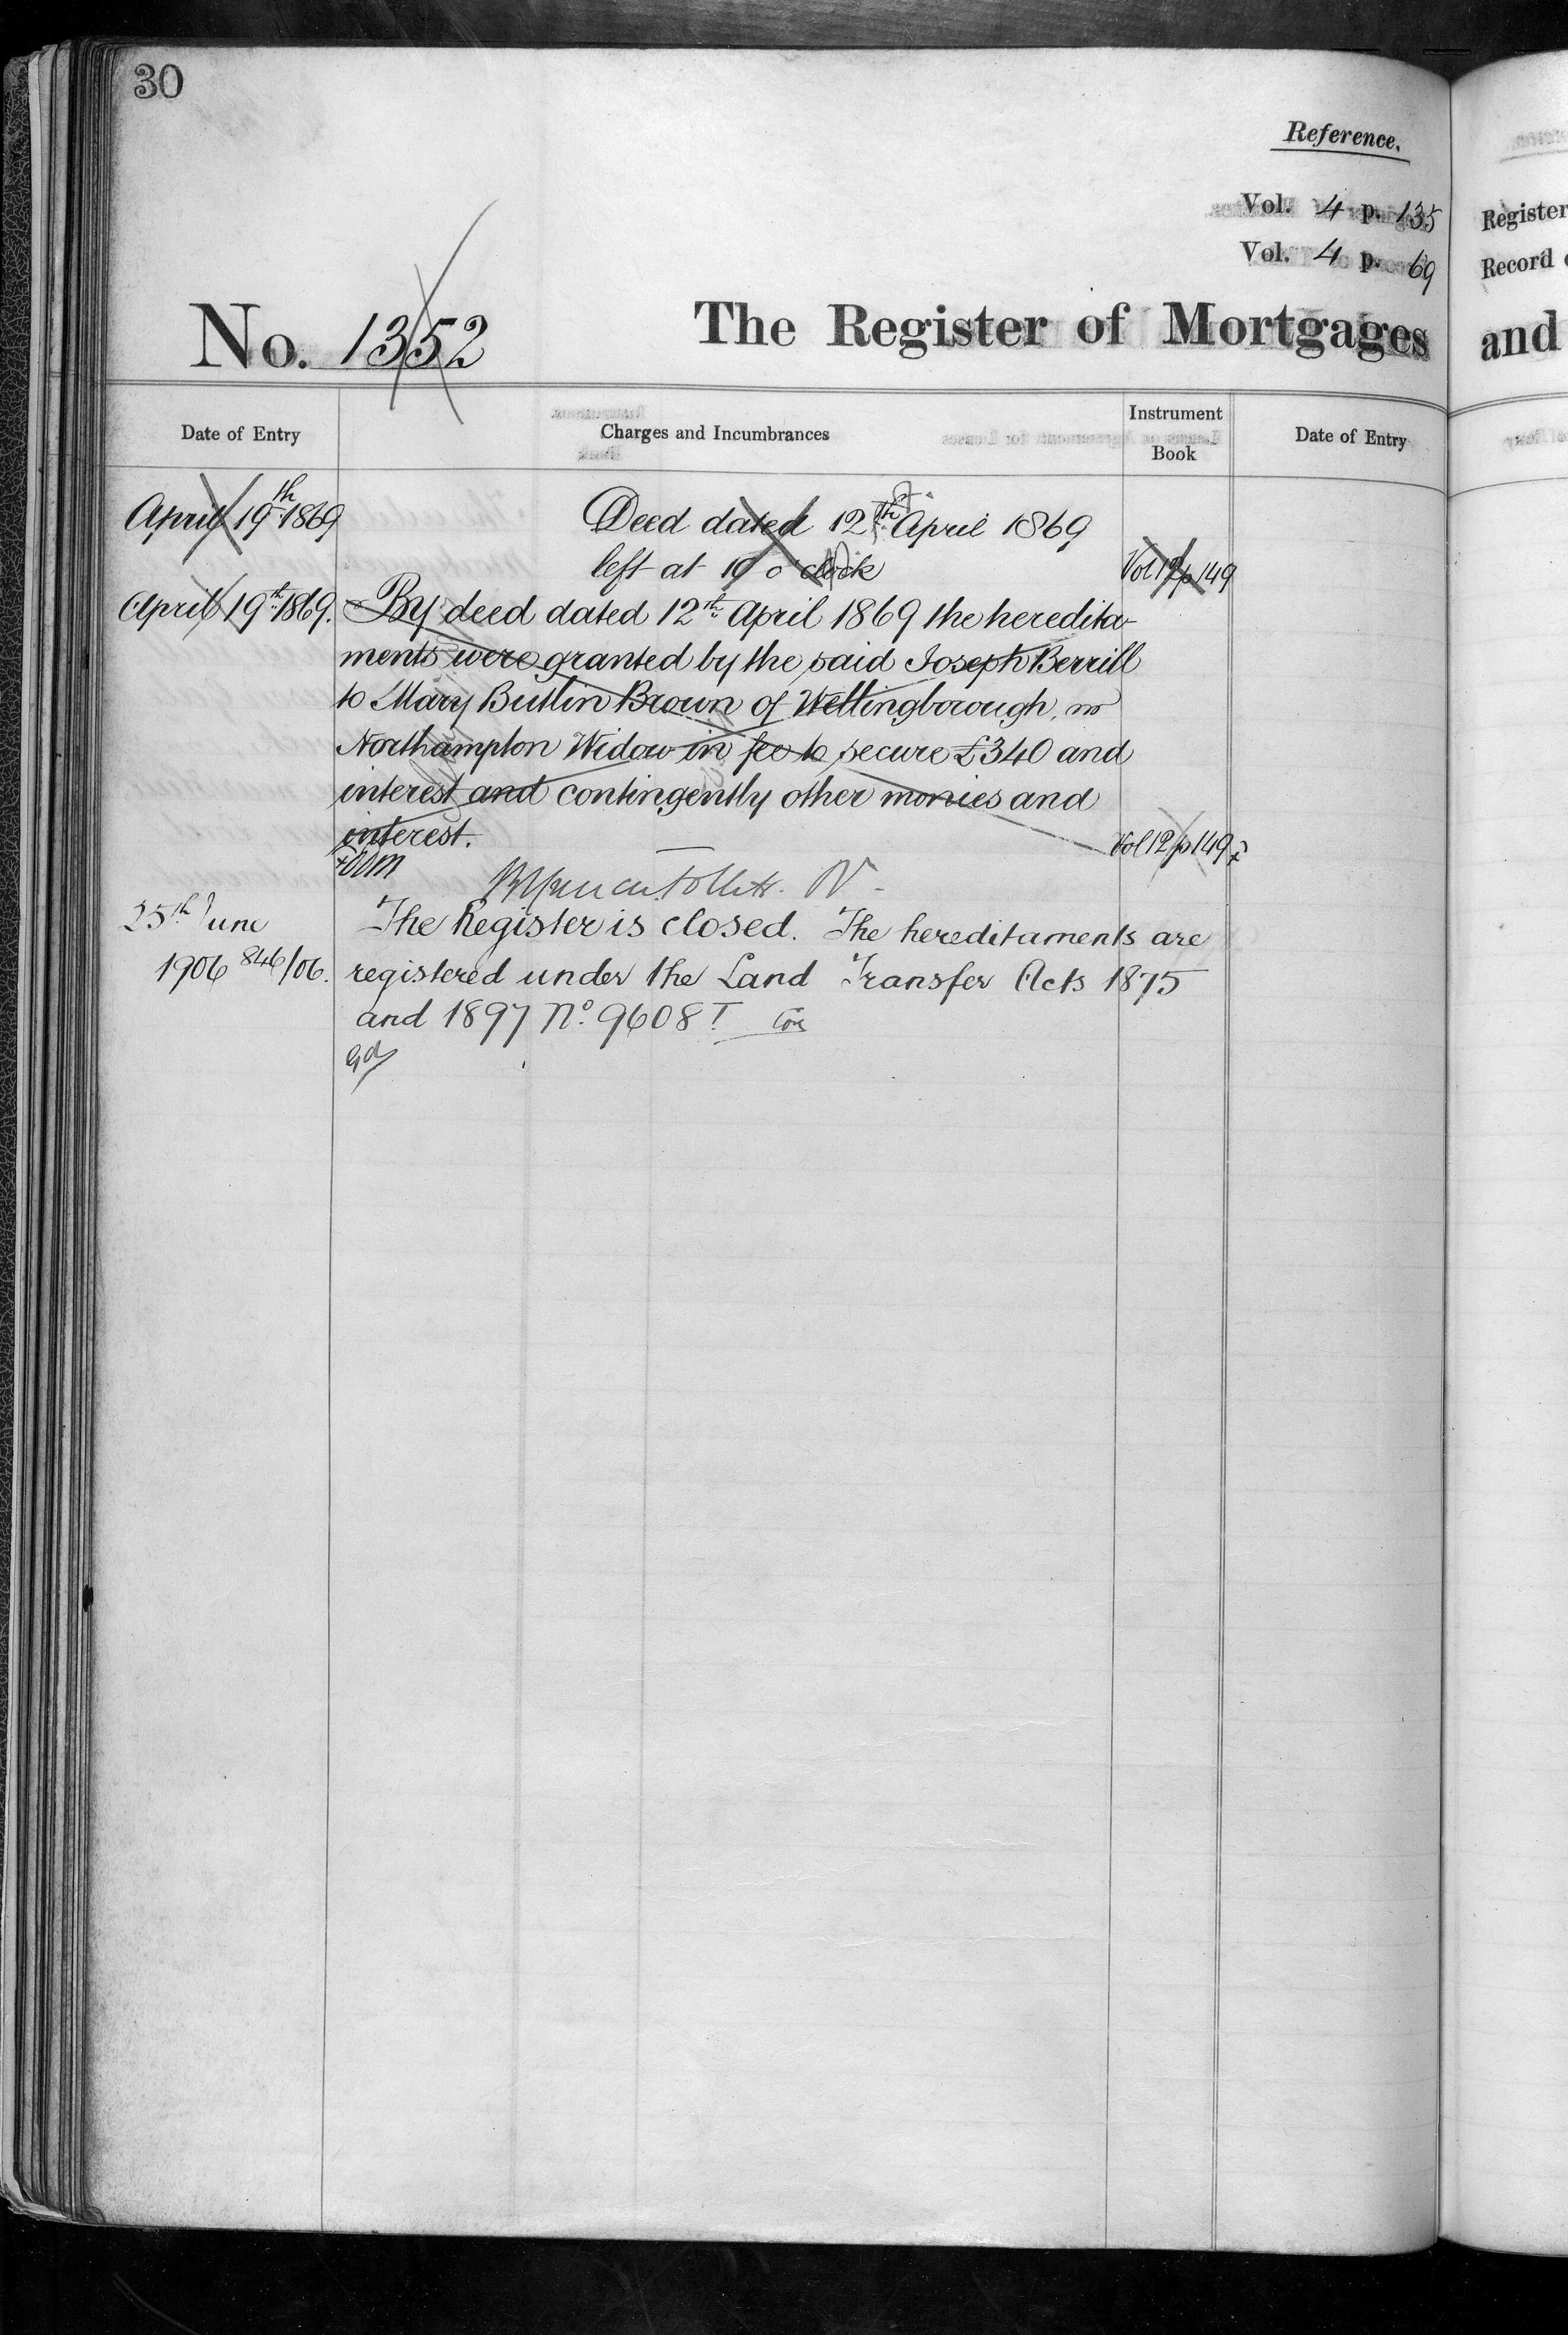 30
Reference.
Vol. 4 p. 135
Register
Vol. 4 p. 69
Record
No. 1352
The Register of Mortgages
and
Date of Entry
Charges and Incumbrances
Instrument
Book
Date of Entry
April 19th 1869
Deed dated 12th April 1869
left at 10 o'clock
Vol 12 p 149
April 19th 1869.
By deed dated 12th April 1869 the heredita-
ments were granted by the said Joseph Berrill
to Mary Butlin Brown of Wellingborough, in
Northampton Widow in fee to secure £340 and
interest and contingently other monies and
interest.
Vol 12 p 149
25th June
1906 846/06.
The Register is closed. The hereditaments are
registered under the Land Transfer Acts 1875
and 1897 No. 9608T